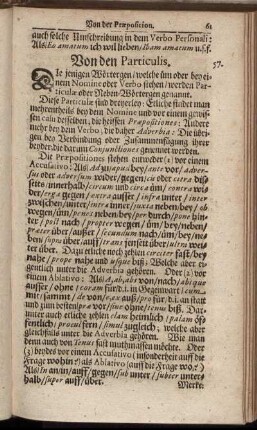 Von der Præposition. 61
auch solche Umschreibung in dem Verbo Personali:
Als/ Eo amatum ich wil lieben/ Ibam amatum u.s.f.
Von den Particulis. 57.
Die jenigen Wörtergen/ welche üm oder bey ei-
nem Nomine oder Verbo stehen/ werden Par-
ticulæ oder Neben-Wörtergen genannt.
Diese Particulæ sind dreyerley: Etliche findet man
mehrentheils bey dem Nomine und vor einem gewis-
sen casu desselben, die heissen Præpositiones: Andere
mehr bey dem Verbo; die daher Adverbia: Die übri-
gen bey Verbindung oder Zusammenfügung ihrer
beyder, die darum Conjunctiones genennet werden.
Die Præpositiones stehen entweder (1) vor einem
Accusativo: Als Ad zu/ apud bey/ ante vor/ adver-
sus oder adversum wider/ gegen/ cis oder citra dis-
seits/ innerhalb/ circum und circa üm/ contra wi-
der/ erga gegen/ extra ausser/ infra unter/ inter
zwischen/ unter/ intra unter/ juxta neben/ bey/ ob
wegen/ üm/ penes neben/ bey/ per durch/ pone hin-
ter/ post nach/ propter wegen/ üm/ bey/ neben/
præter über/ ausser/ secundum nach/ üm/ bey/ ne-
ben/ supra über/ auff/ trans jenseit über/ ultra wei-
ter über. Dazu etliche noch zehlen circiter fast/ bey
nahe/ prope nahe und usque biß: Welche aber ei-
gentlich unter die Adverbia gehören. Oder (2) vor
einem Ablativo: Als A, ab, abs von/ nach/ absque
ausser/ ohne/ coram für/ d.i. in Gegenwart/ cum
mit/ sammt/ de von/ e, ex auß/ pro für/ d.i. an statt
und zum besten/ præ vor/ sine ohne/ tenus biß. Da-
zu man auch etliche zehlen clam heimlich/ palam öf-
fentlich/ procul fern/ simul zugleich; welche aber
gleichfalls unter die Adverbia gehören. Wie man
denn auch von Tenus fast muthmassen möchte. Oder
(3) beydes vor einem Accusativo (insonderheit auff die
Frage wohin?) als Ablativo (auff die Frage wo?)
Als/ In an/in/ auff/ gegen/ sub unter/ subter unter-
halb/ super auff/ über. Mercke: